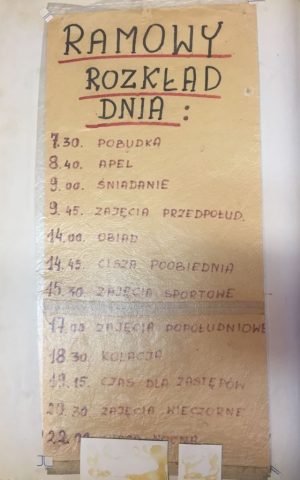 RAMOWY
ROZKŁAD
DNIA :
7.30. POBUDKA
8.40. APEL
9.00. ŚNIADANIE
9.45. ZAJĘCIA PRZEDPOŁUD.
14.00. OBIAD
14.45. CISZA POOBIEDNIA
15.30. ZAJĘCIA SPORTOWE
17.00 ZAJĘCIA POPOŁUDNIOWE
18.30. KOLACJA
19.15. CZAS DLA ZASTĘPÓW
20.30 ZAJĘCIA WIECZORNE
22.00 CISZA NOCNA